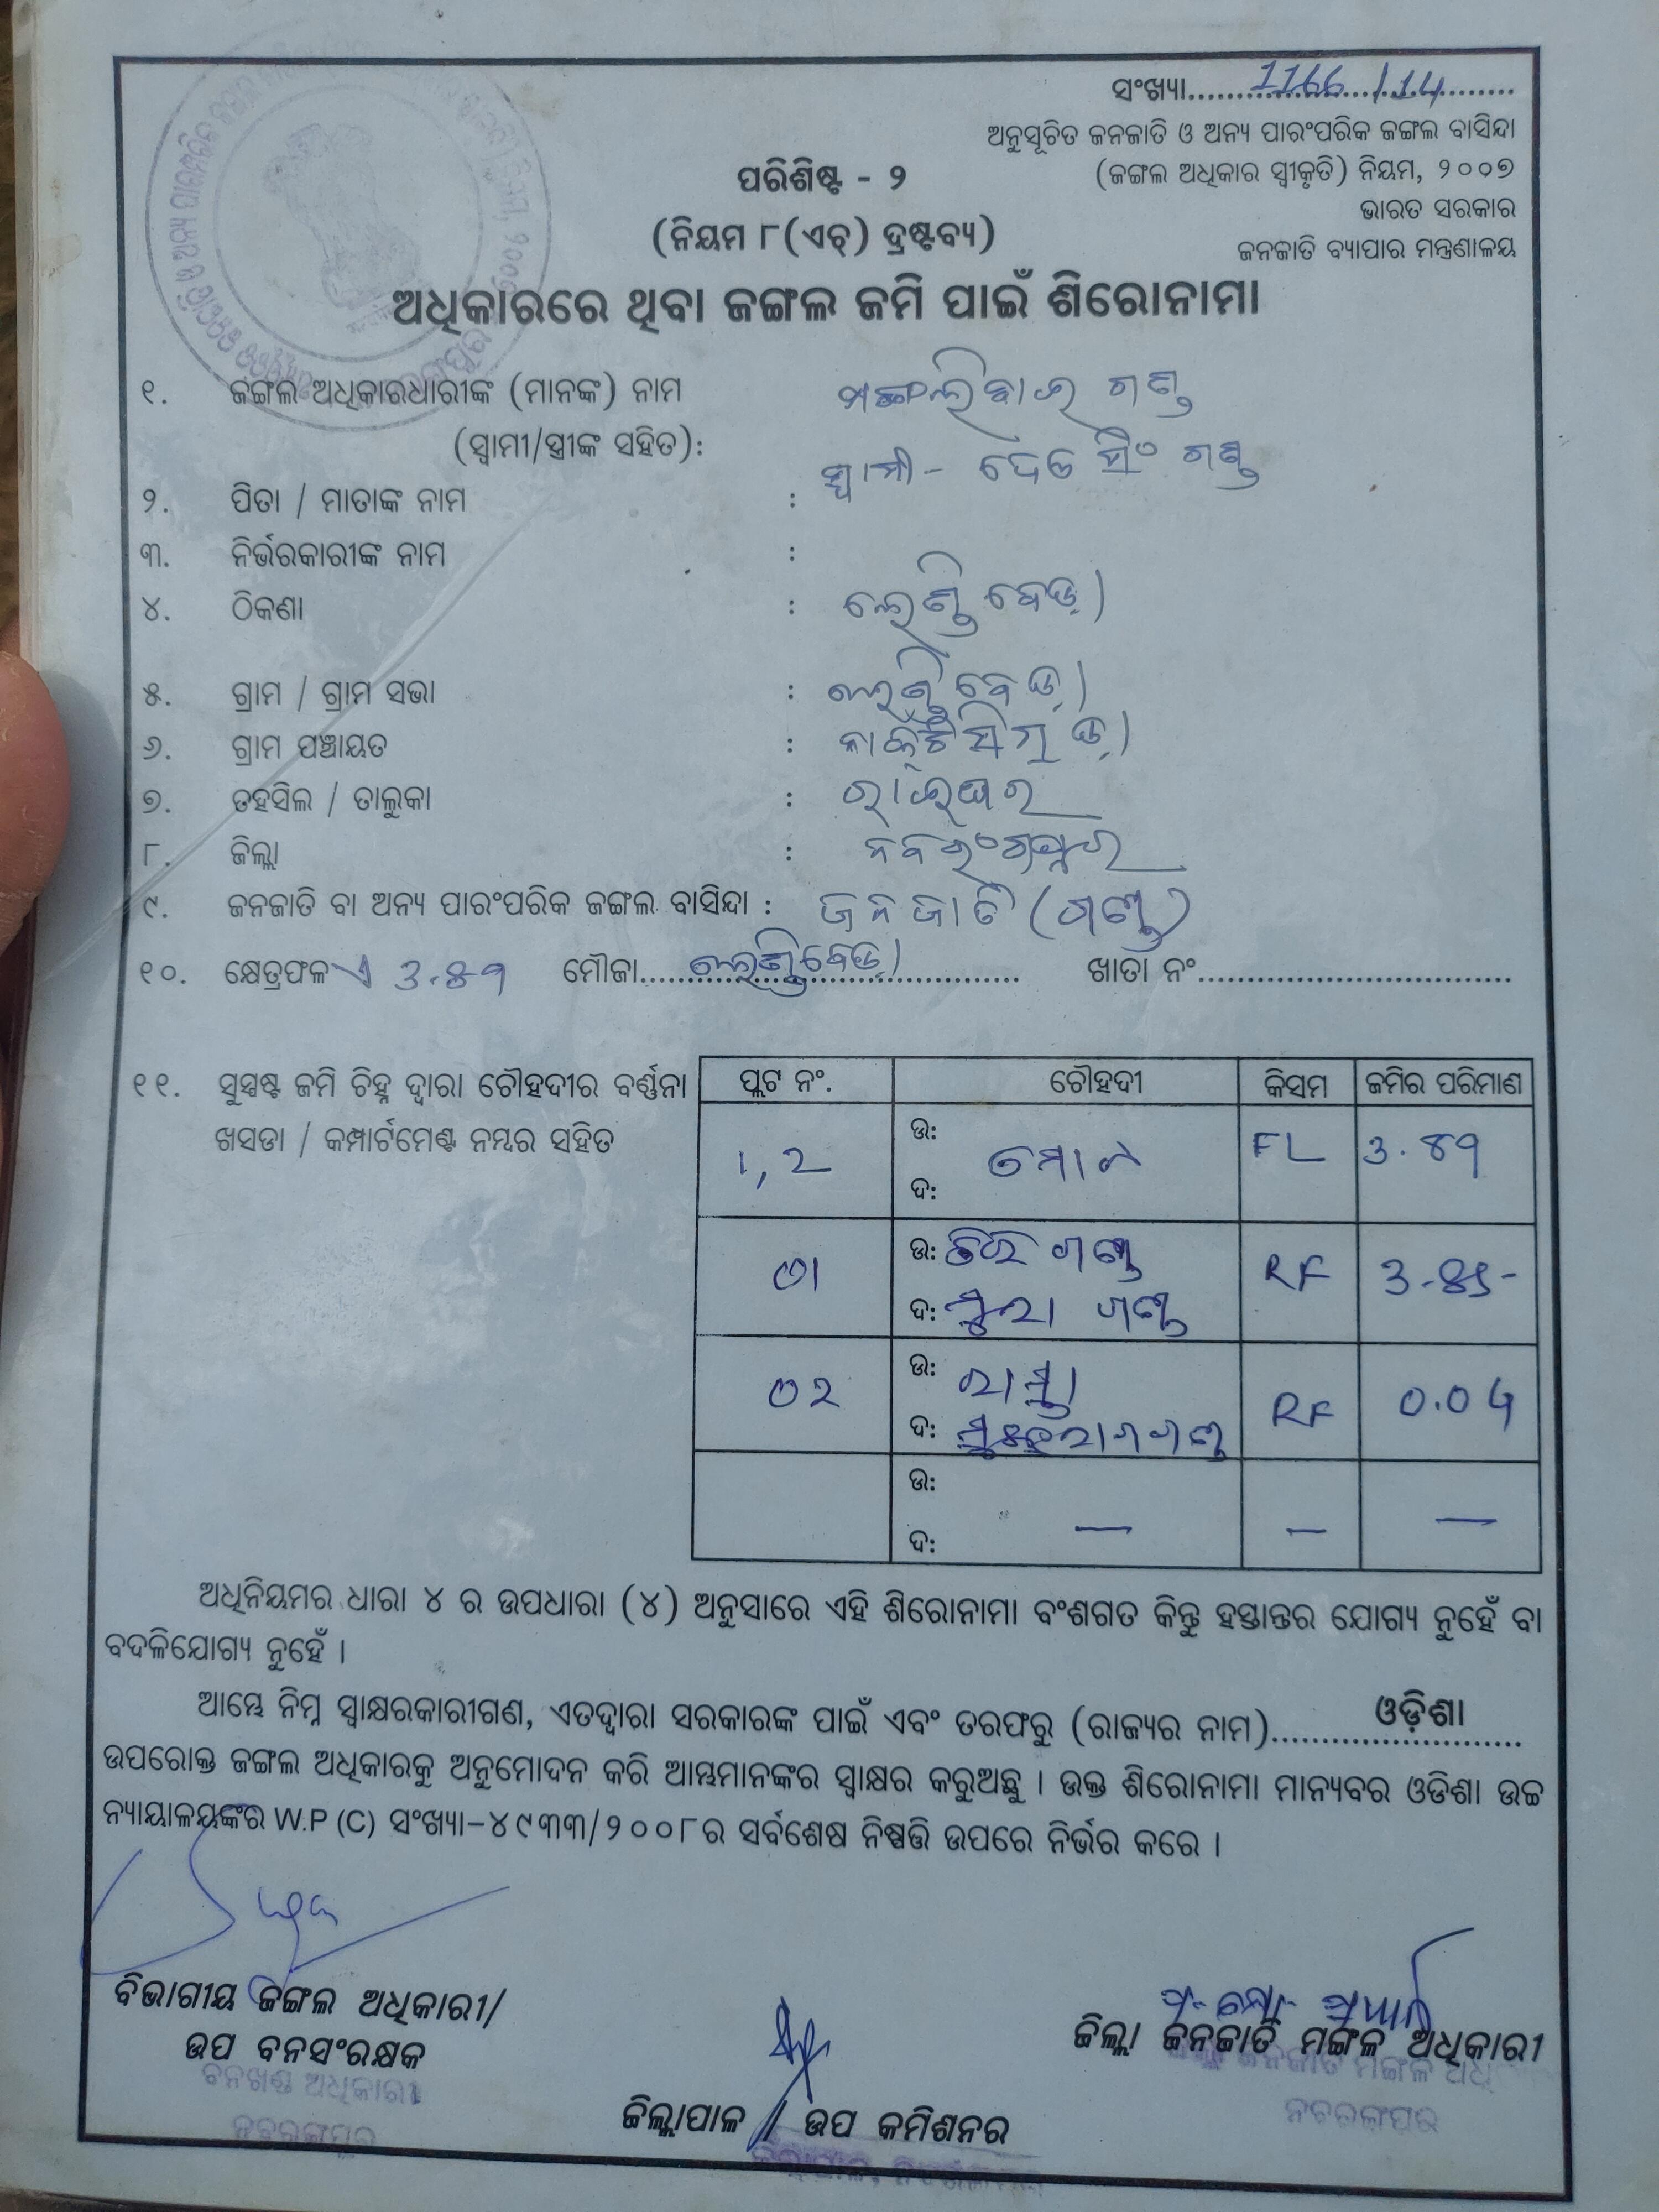 ସଂଖ୍ୟା.......1166/14.......
ଅନୁସୂଚିତ ଜନଜାତି ଓ ଅନ୍ୟ ପାରଂପରିକ ଜଙ୍ଗଲ ବାସିନ୍ଦା
(ଜଙ୍ଗଲ ଅଧିକାର ସ୍ଵୀକୃତି) ନିୟମ, ୨୦୦୭
ଭାରତ ସରକାର
ଜନଜାତି ବ୍ୟାପାର ମନ୍ତ୍ରଣାଳୟ
ପରିଶିଷ୍ଟ - ୨
(ନିୟମ ୮(ଏଚ୍) ଦ୍ରଷ୍ଟବ୍ୟ)
ଅଧିକାରରେ ଥିବା ଜଙ୍ଗଲ ଜମି ପାଇଁ ଶିରୋନାମା
୧. ଜଙ୍ଗଲ ଅଧିକାରଧାରୀଙ୍କ (ମାନଙ୍କ) ନାମ ଗଣ୍ଡ
(ସ୍ଵାମୀ/ସ୍ତ୍ରୀଙ୍କ ସହିତ): ସ୍ୱାମୀ - ସିଂ ଗଣ୍ଡ
୨. ପିତା / ମାତାଙ୍କ ନାମ :
୩. ନିର୍ଭରକାରୀଙ୍କ ନାମ :
୪. ଠିକଣା : ଲେଣ୍ଡିବେଡ଼ା
୫. ଗ୍ରାମ / ଗ୍ରାମ ସଭା : ଲେଣ୍ଡିବେଡ଼ା
୬. ଗ୍ରାମ ପଞ୍ଚାୟତ :
୭. ତହସିଲ / ତାଲୁକା : ରାଇଘର
୮. ଜିଲ୍ଲା : ନବରଂଗପୁର
୯. ଜନଜାତି ବା ଅନ୍ୟ ପାରଂପରିକ ଜଙ୍ଗଲ ବାସିନ୍ଦା : ଜନଜାତି (ଗଣ୍ଡ)
୧୦. କ୍ଷେତ୍ରଫଳ ମୌଜା.......ଲେଣ୍ଡିବେଡ଼ା....... ଖାତା ନଂ..............
୧୧. ସୁସ୍ପଷ୍ଟ ଜମି ଚିହ୍ନ ଦ୍ଵାରା ଚୌହଦୀର ବର୍ଣ୍ଣନା
ଖସଡା / କମ୍ପାର୍ଟମେଣ୍ଟ ନମ୍ବର ସହିତ
ପ୍ଲଟ ନଂ. ଚୌହଦୀ କିସମ ଜମିର ପରିମାଣ
୧,୨ ଉ: ଦ: FL
୦୧ ଉ: ଗଣ୍ଡ RF
ଦ: ଗଣ୍ଡ
୦୨ ଉ: ରାସ୍ତା RF
ଦ:
ଉ:
ଦ: — — —
ଅଧିନିୟମର ଧାରା ୪ ର ଉପଧାରା (୪) ଅନୁସାରେ ଏହି ଶିରୋନାମା ବଂଶଗତ କିନ୍ତୁ ହସ୍ତାନ୍ତର ଯୋଗ୍ୟ ନୁହେଁ ବା
ବଦଳିଯୋଗ୍ୟ ନୁହେଁ ।
ଆମ୍ଭେ ନିମ୍ନ ସ୍ଵାକ୍ଷରକାରୀଗଣ, ଏତଦ୍ଵାରା ସରକାରଙ୍କ ପାଇଁ ଏବଂ ତରଫରୁ (ରାଜ୍ୟର ନାମ).......ଓଡ଼ିଶା.......
ଉପରୋକ୍ତ ଜଙ୍ଗଲ ଅଧିକାରକୁ ଅନୁମୋଦନ କରି ଆମ୍ଭମାନଙ୍କର ସ୍ଵାକ୍ଷର କରୁଅଛୁ । ଉକ୍ତ ଶିରୋନାମା ମାନ୍ୟବର ଓଡିଶା ଉଚ୍ଚ
ନ୍ୟାୟାଳୟଙ୍କର W.P (C) ସଂଖ୍ୟା-୪୯୩୩/୨୦୦୮ର ସର୍ବଶେଷ ନିଷ୍ପତ୍ତି ଉପରେ ନିର୍ଭର କରେ ।
ବିଭାଗୀୟ ଜଙ୍ଗଲ ଅଧିକାରୀ/
ଉପ ବନସଂରକ୍ଷକ
ବନଖଣ୍ଡ ଅଧିକାରୀ
ନବରଙ୍ଗପୁର
ଜିଲ୍ଲାପାଳ / ଉପ କମିଶନର
ଜିଲ୍ଲା ଜନଜାତି ମଙ୍ଗଳ ଅଧିକାରୀ
ଜିଲ୍ଲା ଜନଜାତି ମଙ୍ଗଳ ଅଧି
ନବରଙ୍ଗପୁର